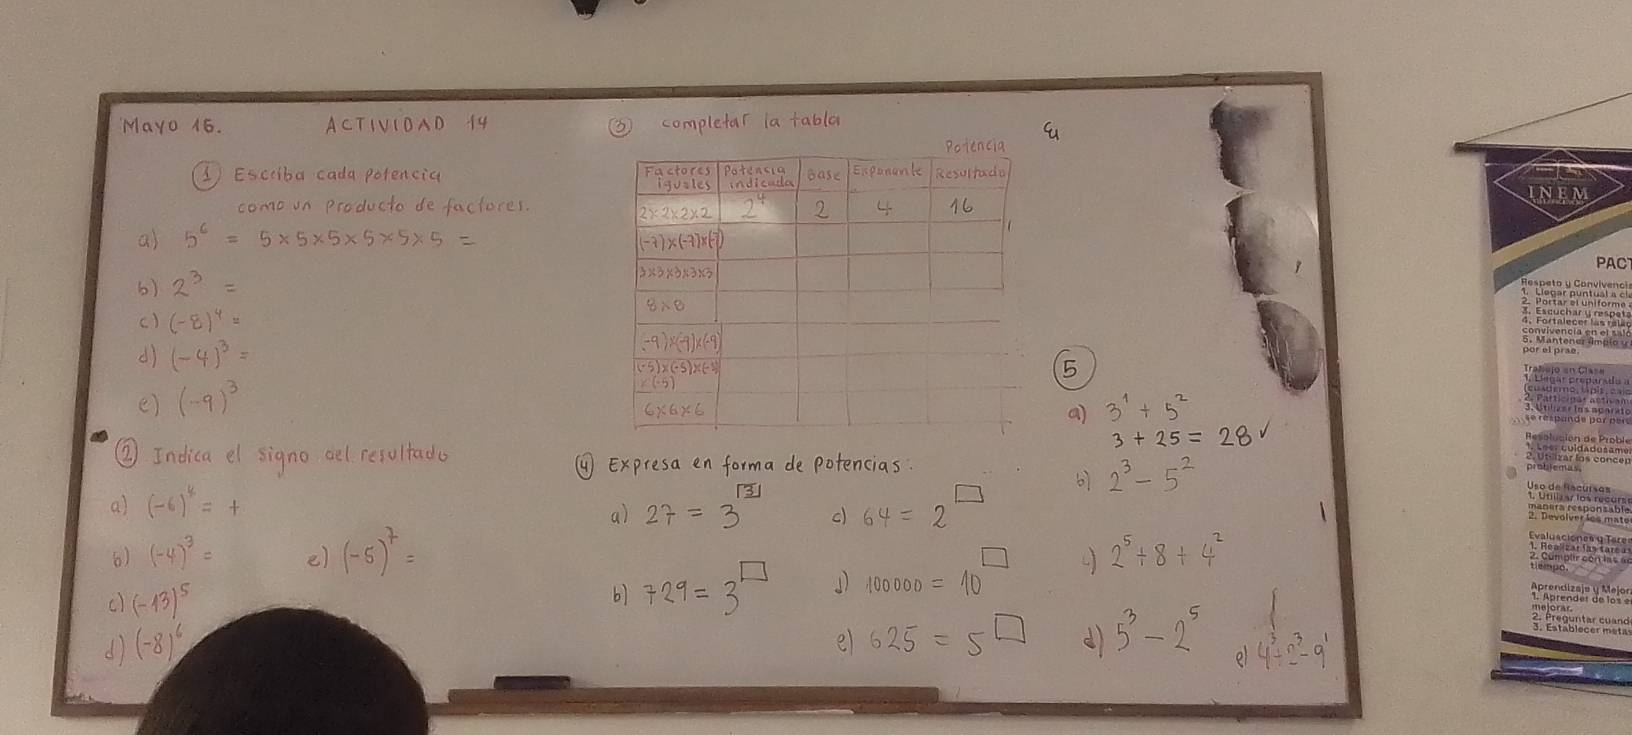 Mayo 16. ACTIVIDAD 14
① Escriba cada potencia
como un producto de factores.
a) 5⁶ = 5×5×5×5×5×5 =
b) 2³ =
c) (-8)⁴ =
d) (-4)³ =
e) (-9)³
② Indica el signo del resultado
a) (-6)⁴ = +
b) (-4)³ =
c) (-13)⁵
d) (-8)⁶
e) (-5)⁷ =
③ completar la tabla
Potencia
Factores iguales Potencia indicada Base Exponente Resultado
2×2×2×2 2⁴ 2 4 16
(-7)×(-7)×(-7)
3×3×3×3×3
8×8
(-9)×(-9)×(-9)
(-5)×(-5)×(-5)
×(-5)
6×6×6
④ Expresa en forma de potencias:
a) 27 = 3³
b) 729 = 3□
c) 64 = 2□
d) 100000 = 10□
e) 625 = 5□
⑤
a) 3¹ + 5²
3 + 25 = 28 ✓
b) 2³ - 5²
c) 2⁵ + 8 + 4²
d) 5³ - 2⁵
e) 4³ + 2³ - 9¹
INEM
PACT
Respeto y Convivencia
1. Llegar puntual a cla
2. Portar el uniforme
3. Escuchar y respeta
4. Fortalecer las
convivencia en el saló
5. Mantener limpio y
por el prae.
Trabajo en Clase
1. Llegar preparado a
2. Participar activam
3. Utilizar los aparato
se responde por
Resolución de Proble
1. Leer cuidadosame
2. Utilizar los concep
problemas.
Uso de Recursos
1. Utilizar los recurso
manera responsable
2. Devolver los mate
Evaluaciones y Tarea
1. Realizar las tareas
2. Cumplir con las
tiempo.
Aprendizaje y Mejor
1. Aprender de los e
mejorar.
2. Preguntar cuand
3. Establecer metas